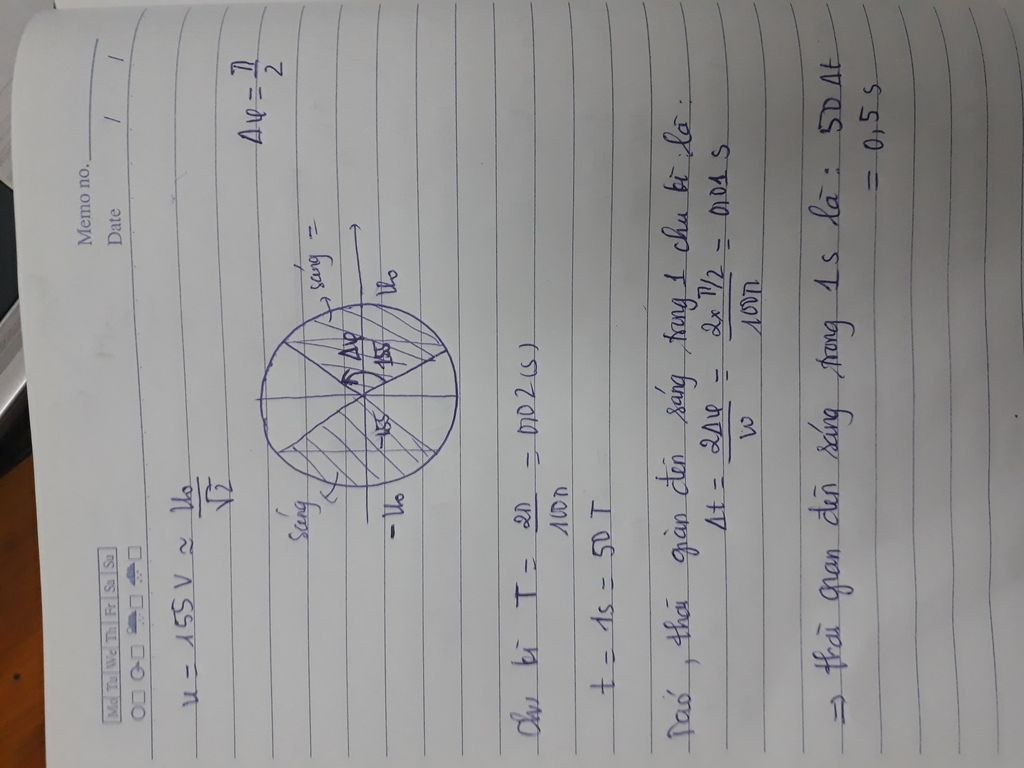 Memo no.
Mo Tu We Th Fr Sa Su
Date / /
u = 155 V ≃ U₀/√2
Δφ = π/2
sáng
sáng =
Δφ
-155
155
-U₀
U₀
Chu kì T = 2π/100π = 0,02 (s)
t = 1s = 50 T
Do đó, thời gian đèn sáng trong 1 chu kì là:
Δt = 2Δφ/ω = 2x π/2/100π = 0,01 s
=> thời gian đèn sáng trong 1 s là: 50 Δt
= 0,5 s